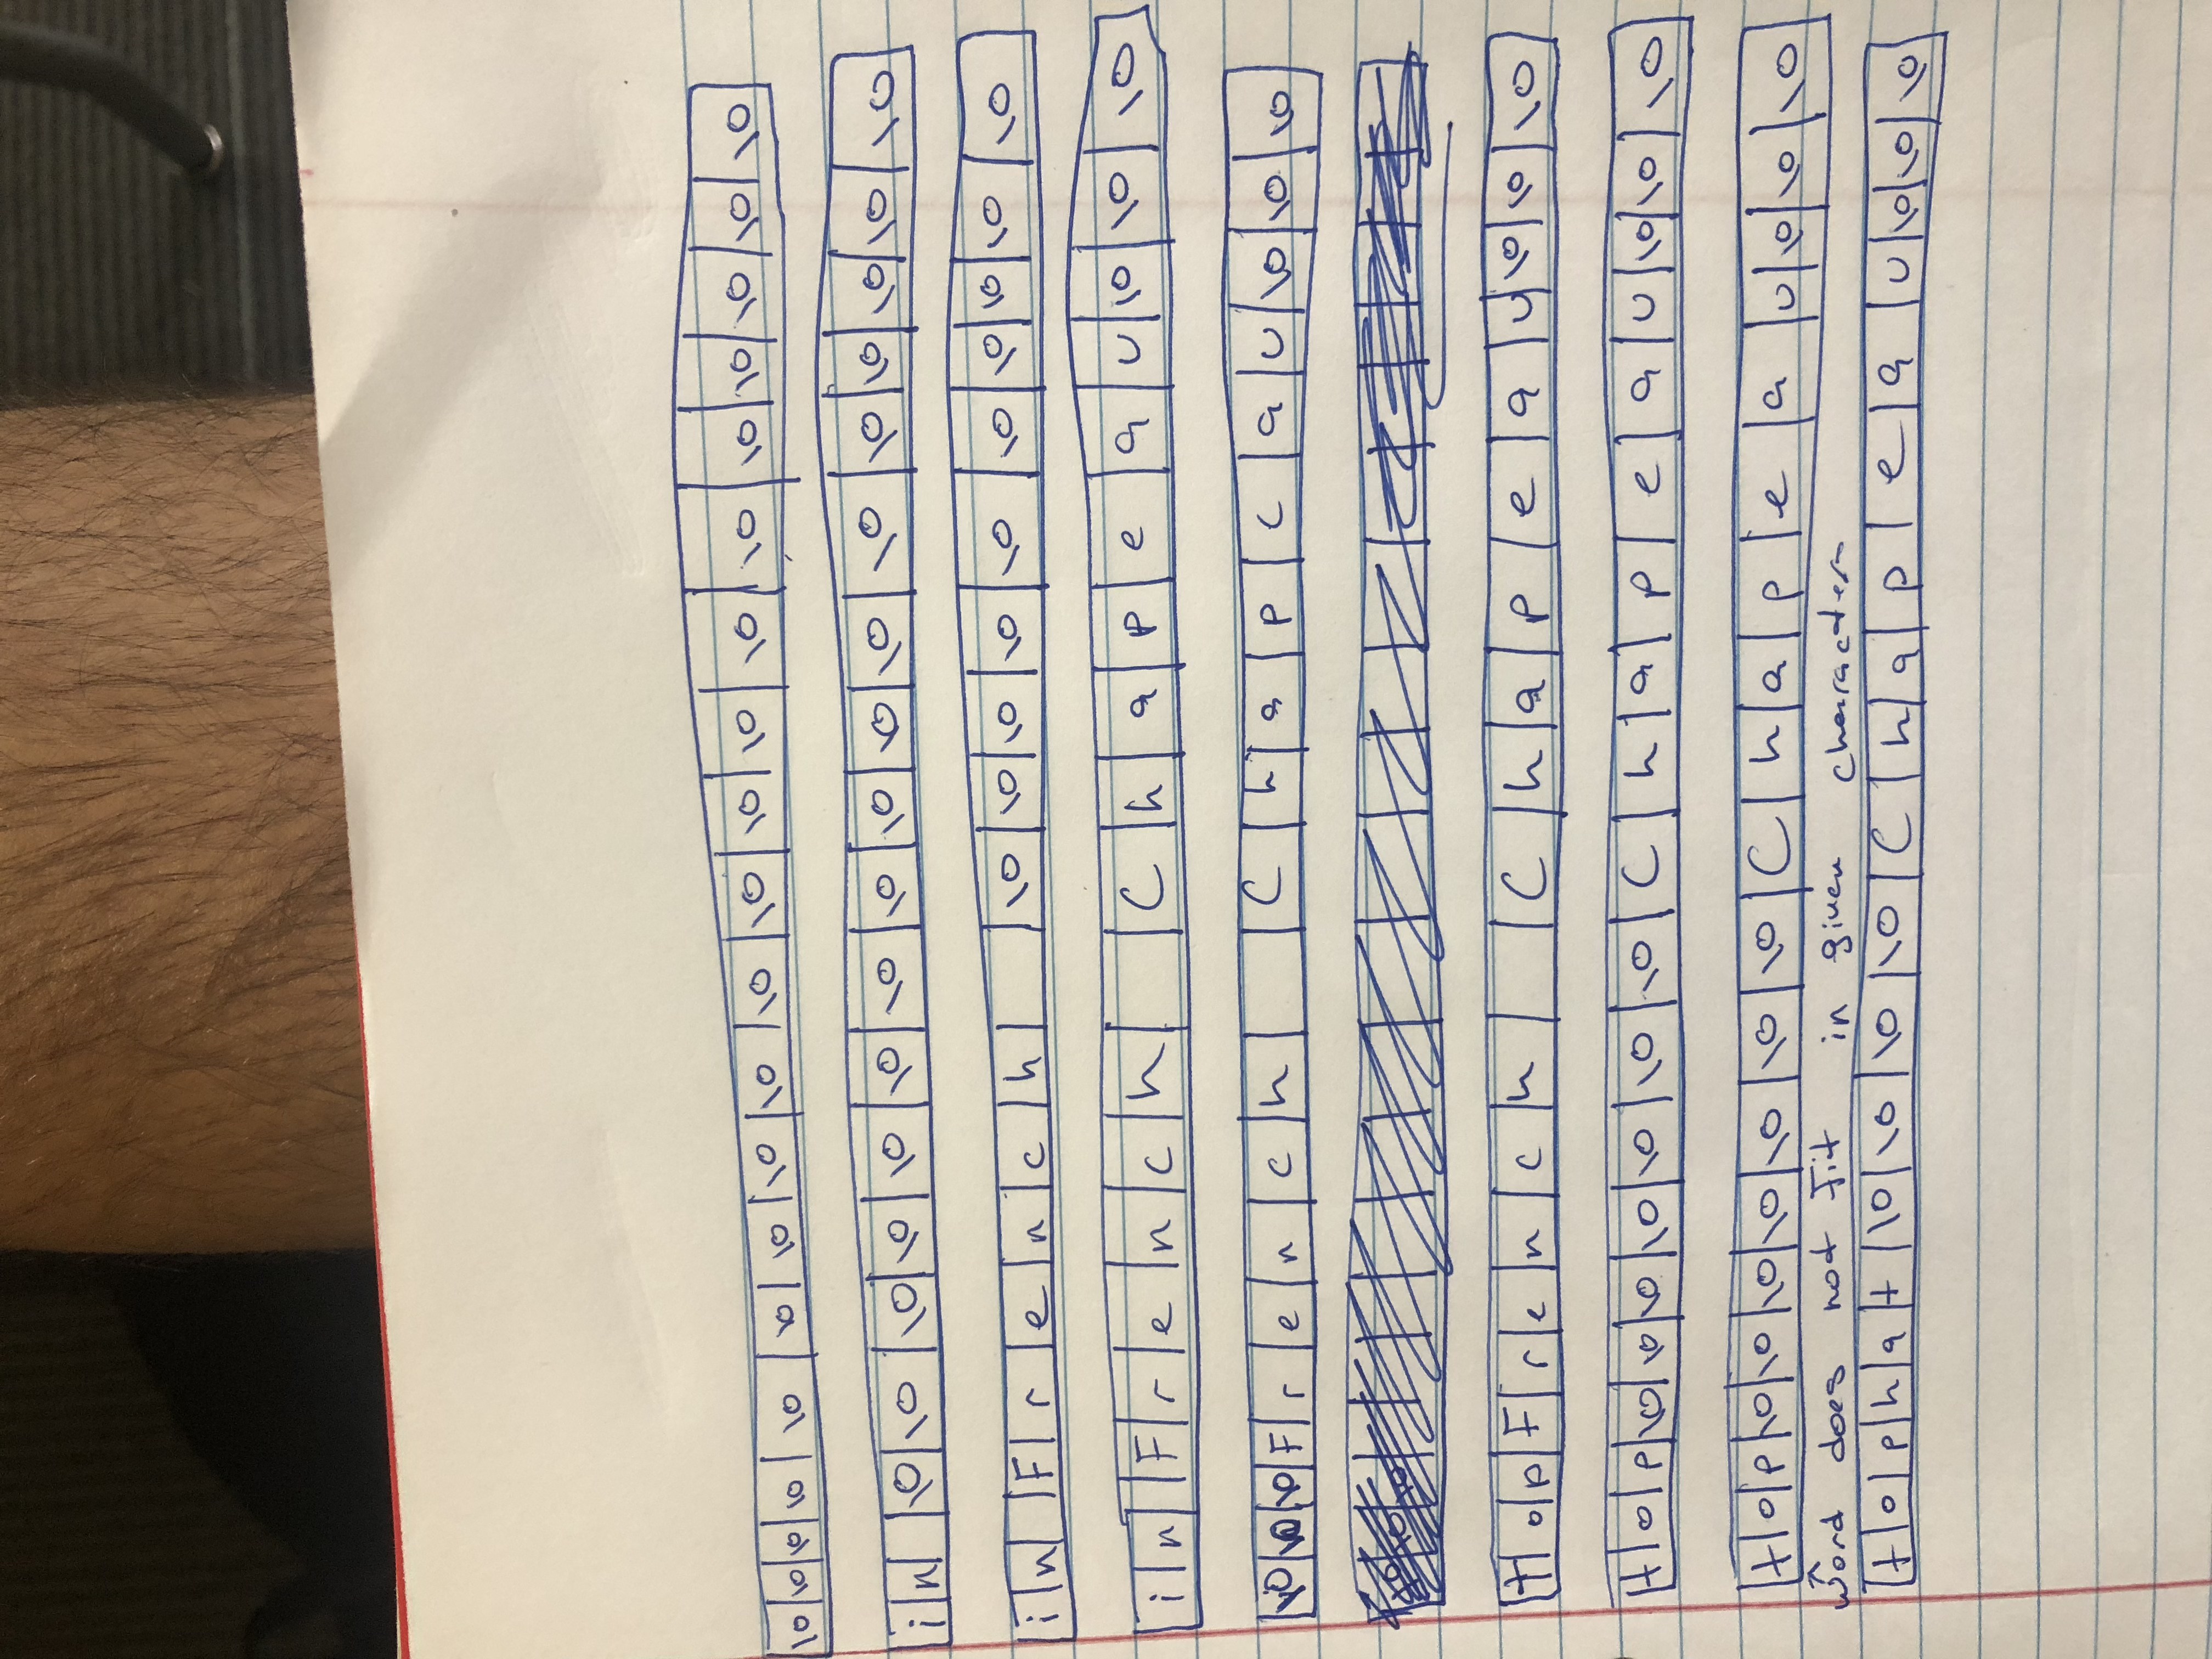 \0 \0 \0 \0 \0 \0 \0 \0 \0 \0 \0 \0 \0 \0 \0 \0 \0 \0 \0 \0
i n \0 \0 \0 \0 \0 \0 \0 \0 \0 \0 \0 \0 \0 \0 \0 \0 \0
i n F r e n c h \0 \0 \0 \0 \0 \0 \0 \0 \0 \0
i n F r e n c h C h a p e a u \0 \0 \0
\0 \0 \0 F r e n c h C h a p c a u \0 \0 \0
t o p F r e n c h C h a p e a u \0 \0 \0
t o p \0 \0 \0 \0 \0 \0 \0 C h a p e a u \0 \0 \0
t o p \0 \0 \0 \0 \0 \0 \0 C h a p e a u \0 \0 \0
word does not fit in given characters
t o p h a t \0 \0 \0 \0 C h a p e a u \0 \0 \0